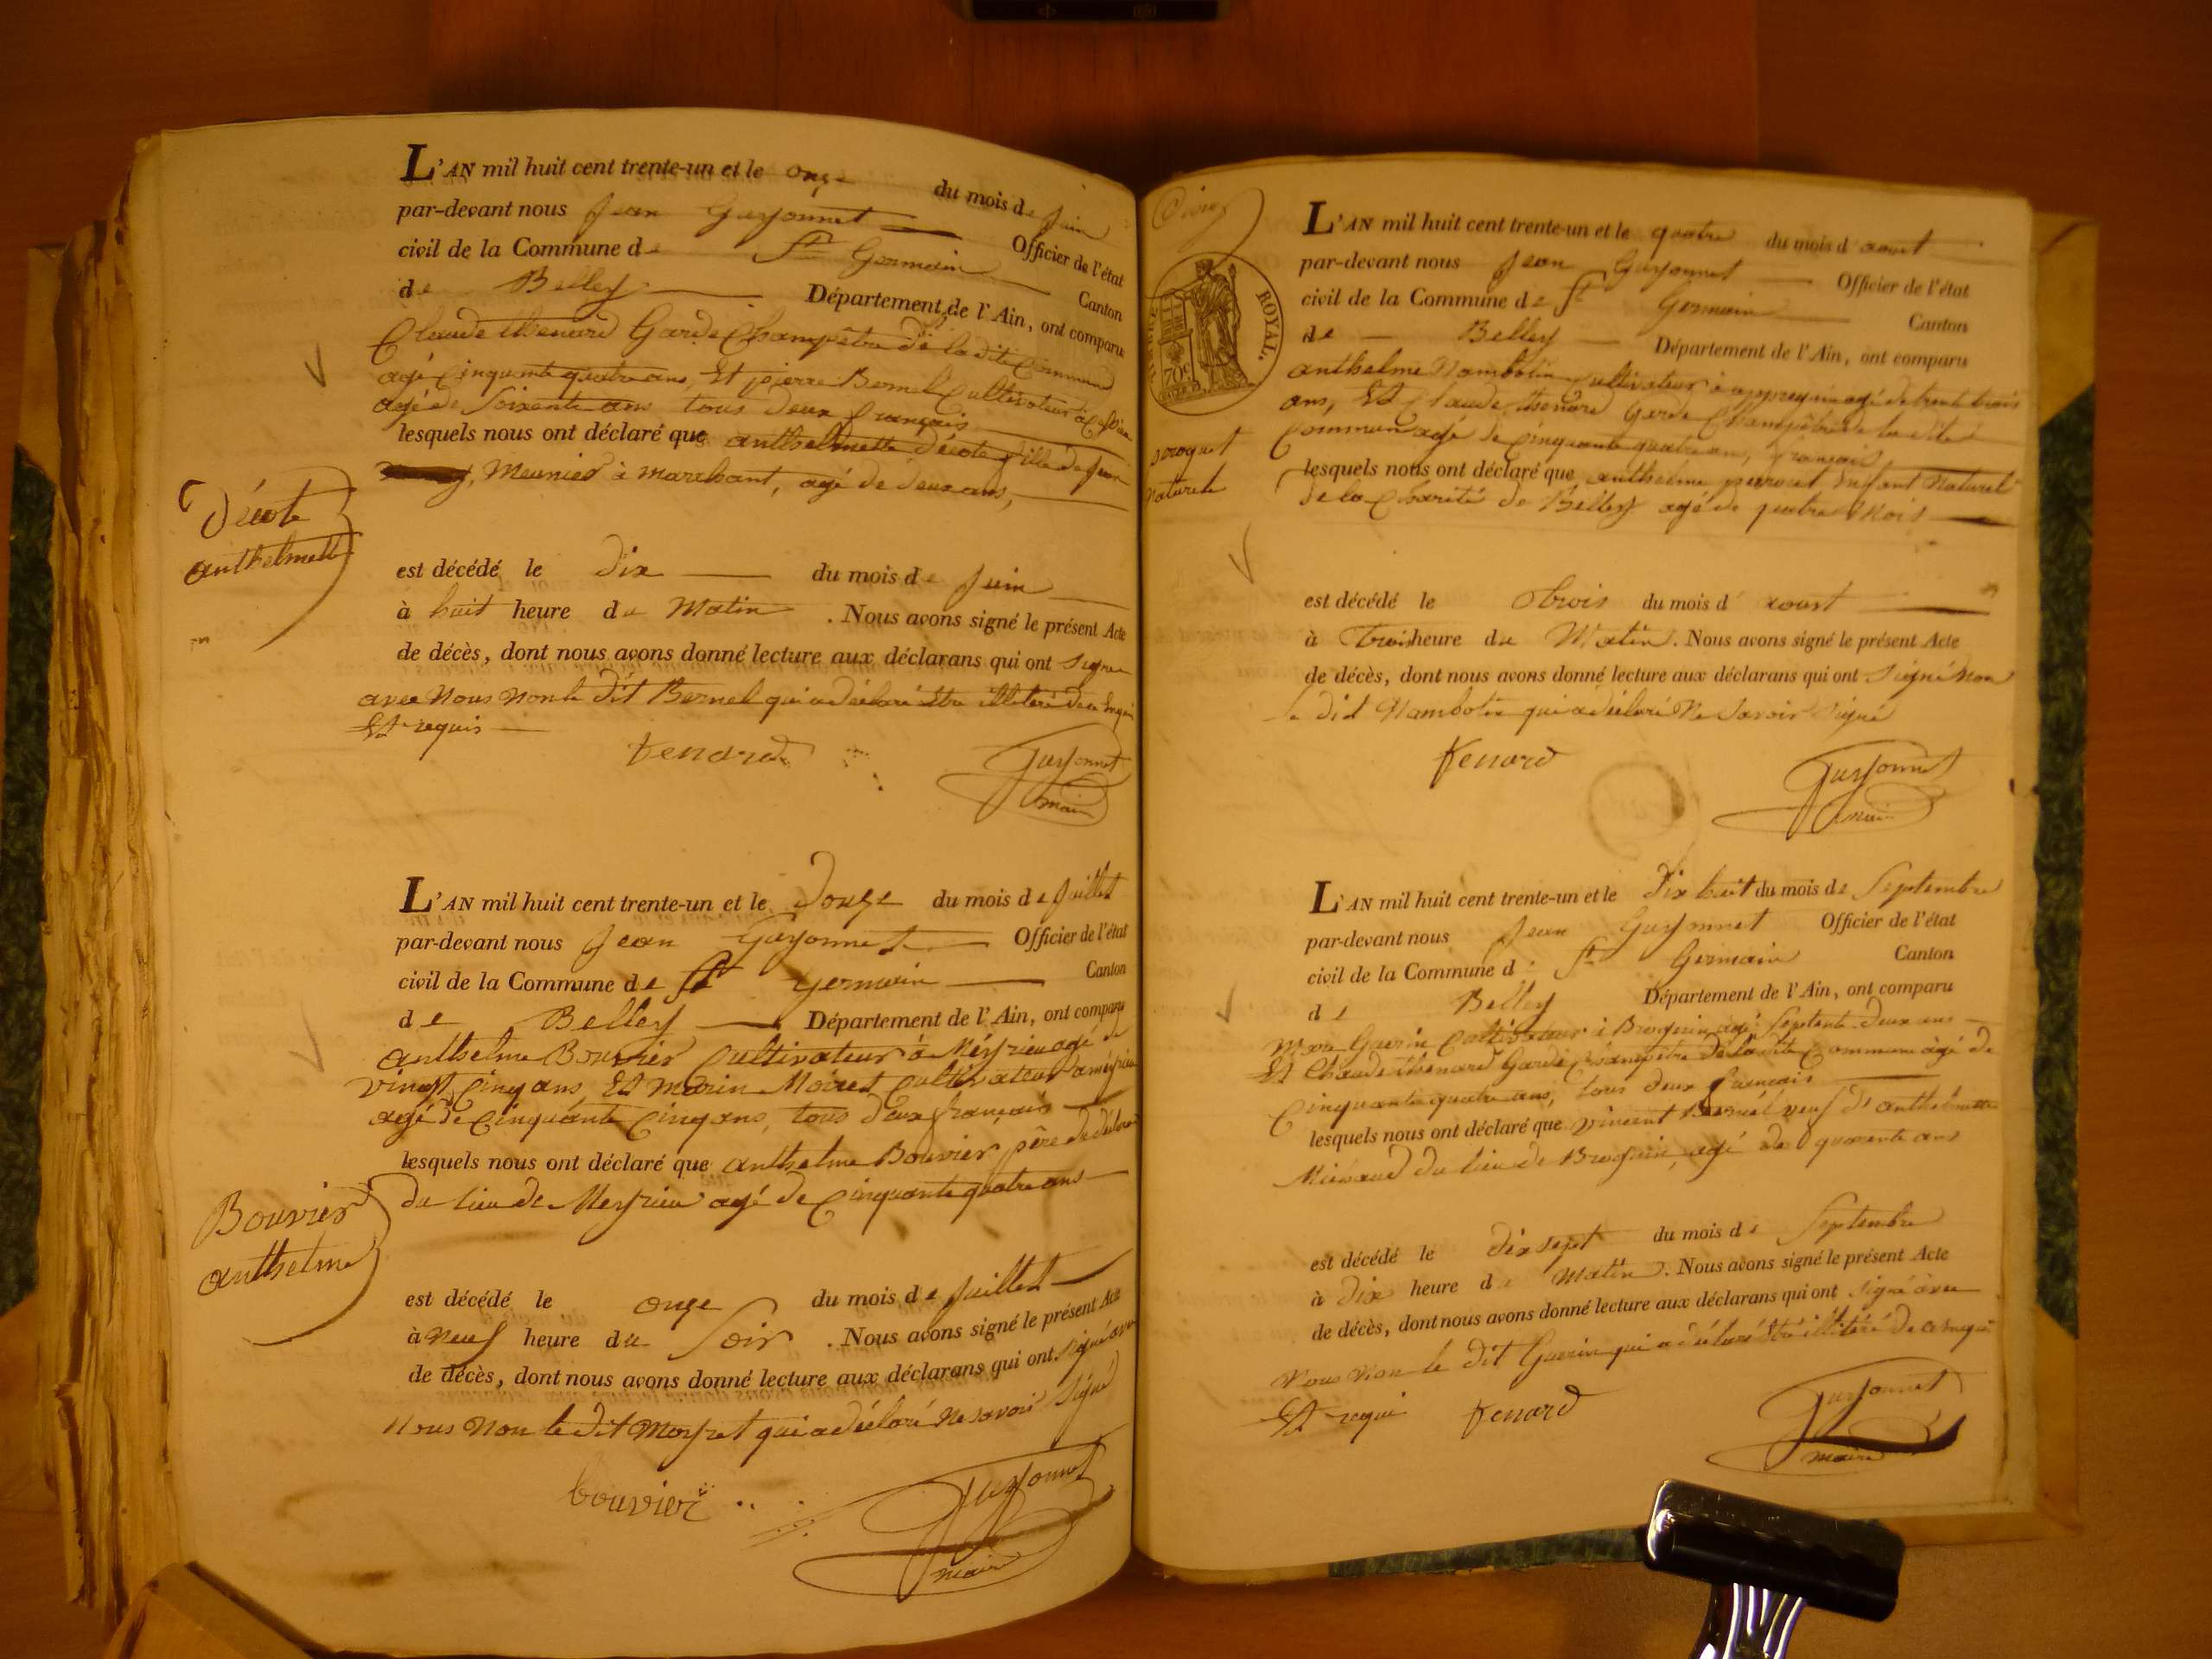 L'AN mil huit cent trente-un et le onze du mois de Juin
par-devant nous Jean Guyonnet Officier de l'état
civil de la Commune de St Germain Canton
de Belley Département de l'Ain, ont comparu
Claude thenard Garde Champêtre de la dite Commune
agé Cinquante quatre ans, Et pierre Bernel Cultivateur à
agé de Soixante ans tous deux français
lesquels nous ont déclaré que anthelmette décote fille de Jean
Meunier à marchant, agé de deux ans,
Décote
anthelmette
est décédé le dix du mois de Juin
à huit heure du Matin. Nous avons signé le présent Acte
de décès, dont nous avons donné lecture aux déclarans qui ont signé
avec Nous non le dit Bernel qui a déclaré être illiteré de ce
Et requis
tenard
Guyonnet
maire
L'AN mil huit cent trente-un et le Douze du mois de Juillet
par-devant nous Jean Guyonnet Officier de l'état
civil de la Commune de St Germain Canton
de Belley Département de l'Ain, ont comparu
anthelme Bouvier Cultivateur à Meyrieu agé de
vingt Cinq ans Et marin Moiret Cultivateur à meyrieu
agé de Cinquante Cinq ans, tous deux français
lesquels nous ont déclaré que anthelme Bouvier père du
du lieu de Meyrieu agé de Cinquante quatre ans
Bouvier
anthelme
est décédé le onze du mois de Juillet
à Neuf heure du Soir. Nous avons signé le présent Acte
de décès, dont nous avons donné lecture aux déclarans qui ont signé avec
Nous Non le dit Moyret qui a déclaré Ne savoir signé
bouvier
Guyonnet
maire
ROYAL.
70c
naturele
L'AN mil huit cent trente-un et le quatre du mois d'aout
par-devant nous Jean Guyonnet Officier de l'état
civil de la Commune de St Germain Canton
de Belley Département de l'Ain, ont comparu
anthelme Nambotin Cultivateur à agé de trente trois
ans, Et Claude thenard Garde Champêtre de la dite
Commune agé de Cinquante quatre ans, français
lesquels nous ont déclaré que anthelme Enfant Naturel
de la Charité de Belley agé de quatre Mois
est décédé le trois du mois d'aoust
à trois heure du Matin. Nous avons signé le présent Acte
de décès, dont nous avons donné lecture aux déclarans qui ont signé non
le dit Nambotin qui a déclaré Ne savoir signé
tenard
Guyonnet
maire
L'AN mil huit cent trente-un et le dix huit du mois de Septembre
par-devant nous Jean Guyonnet Officier de l'état
civil de la Commune d St Germain Canton
de Belley Département de l'Ain, ont comparu
Marc Guerin Cultivateur à Brognin agé Septente deux ans
Et Claude thenard Garde Champêtre de la dite Commune agé de
Cinquante quatre ans, tous deux français
lesquels nous ont déclaré que vincent Bernel veuf d'anthelmette
du lieu de Brognin, agé de quarente ans
est décédé le dix sept du mois de Septembre
à dix heure du Matin. Nous avons signé le présent Acte
de décès, dont nous avons donné lecture aux déclarans qui ont signé avec
Nous Non le dit Guerin qui a déclaré être illiteré de ce
Et requi
tenard
Guyonnet
maire